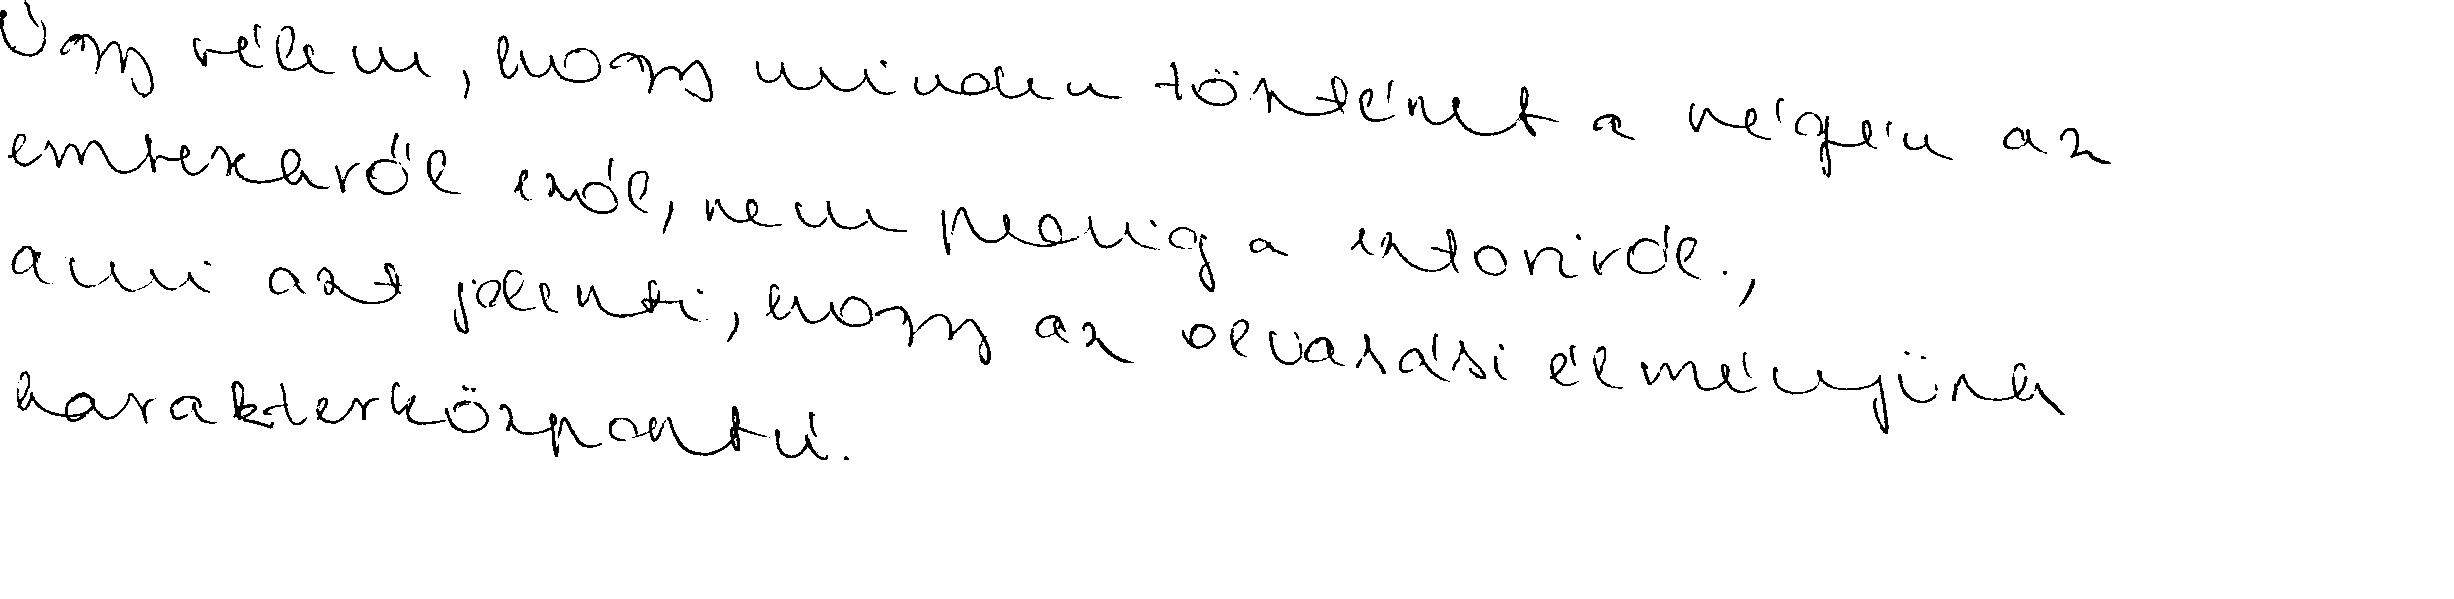 Úgy vélem, hogy minden történet a végén az
emberekről szól, nem pedig a sztoriról.,
ami azt jelenti, hogy az olvasási élményünk
karakterközpontú.